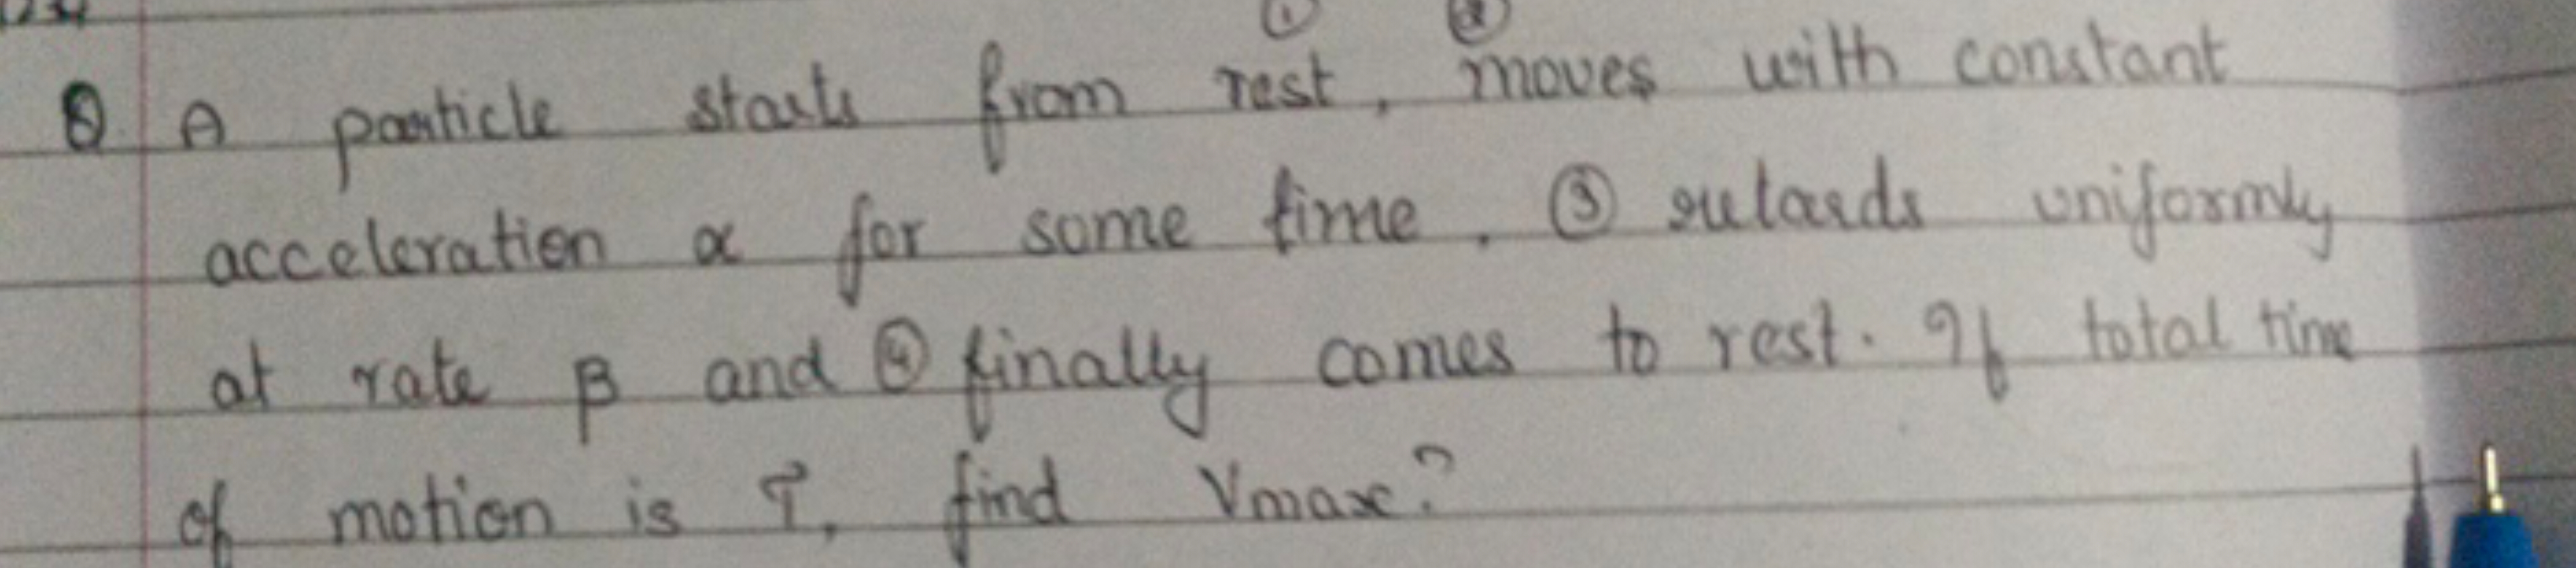 ① ②
Q. A particle starts from rest, moves with constant
acceleration α for some time. ③ retards uniformly
at rate β and ④ finally comes to rest. If total time
of motion is T, find Vmax?